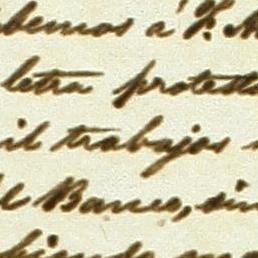 bemos a V. M
letra protesta
il trabajos
el Banco, sin